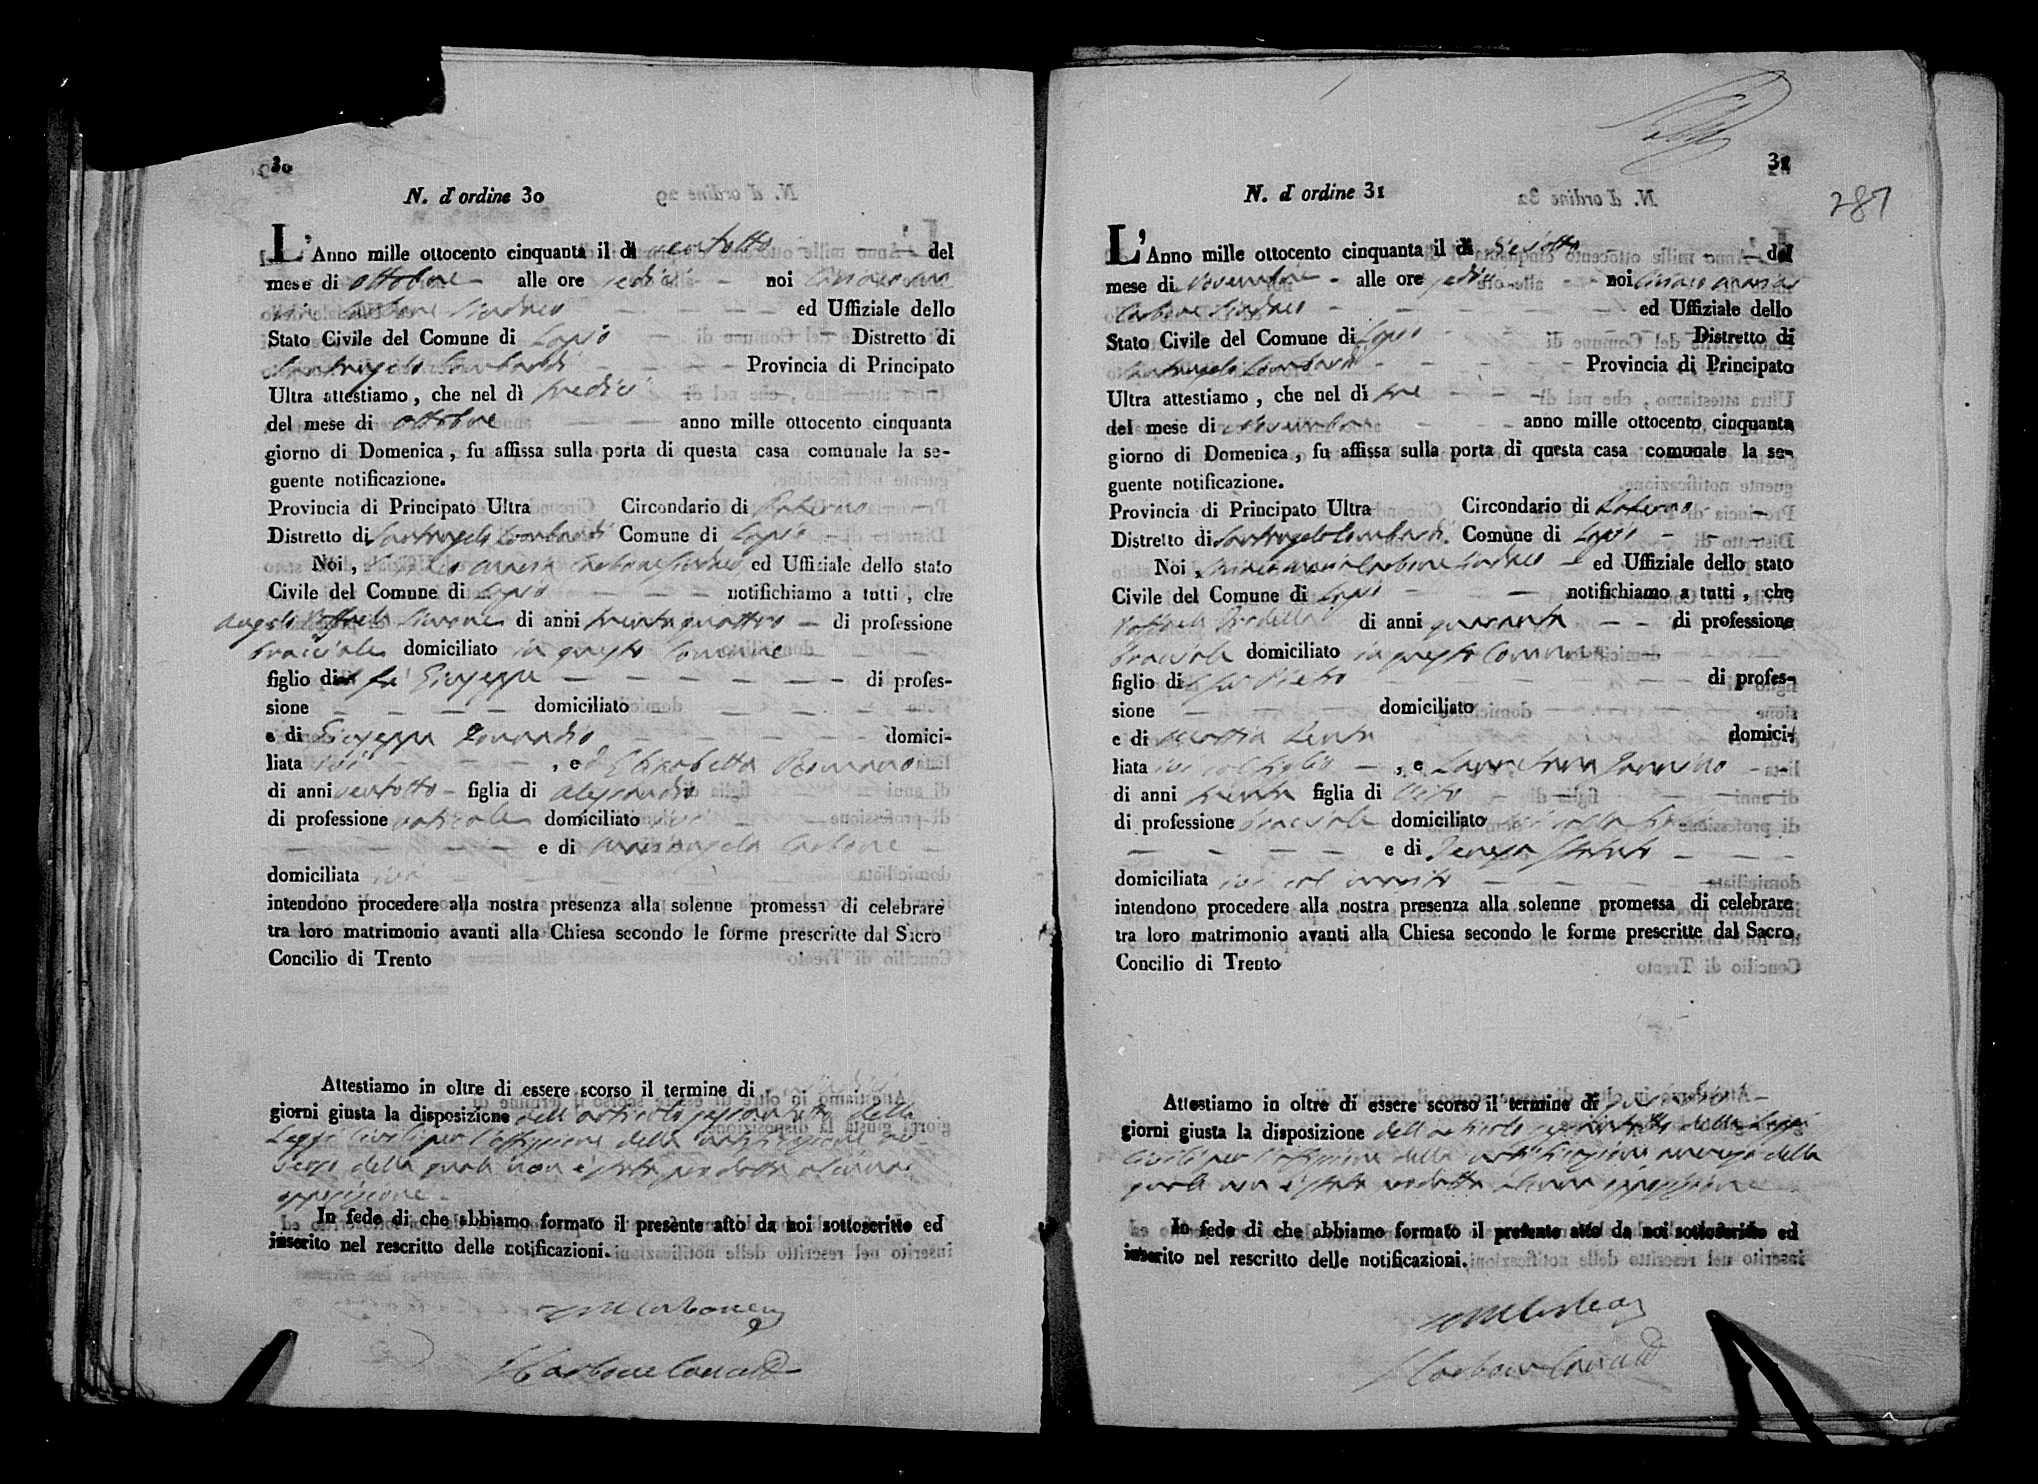 30
N. d'ordine 30
L'Anno mille ottocento cinquanta il dì ventotto del
mese di ottobre alle ore sedici noi Ciriaco Ma
ria Carbone Sindaco ed Uffiziale dello
Stato Civile del Comune di Lapio Distretto di
Santangelo Lombardi Provincia di Principato
Ultra attestiamo, che nel dì tredici
del mese di ottobre anno mille ottocento cinquanta
giorno di Domenica, fu affissa sulla porta di questa casa comunale la se-
guente notificazione.
Provincia di Principato Ultra Circondario di Paterno
Distretto di Santangelo Lombardi Comune di Lapio
Noi, Ciriaco Maria Carbone Sindaco ed Uffiziale dello stato
Civile del Comune di Lapio notifichiamo a tutti, che
Angelo Raffaele Simone di anni trentaquattro di professione
bracciale domiciliato in questo Comune
figlio di fu Giuseppe di profes-
sione domiciliato
e di Giuseppa domici-
liata ivi, ed Elisabetta Romano
di anni ventotto figlia di Alessandro
di professione domiciliato ivi
e di Mariangela Carbone
domiciliata ivi
intendono procedere alla nostra presenza alla solenne promessa di celebrare
tra loro matrimonio avanti alla Chiesa secondo le forme prescritte dal Sacro
Concilio di Trento
Attestiamo in oltre di essere scorso il termine di
giorni giusta la disposizione dell'articolo sessantotto delle
Leggi Civili per l'affissione della notificazione av
verso della quale non è stata prodotta alcuna
opposizione
In fede di che abbiamo formato il presente atto da noi sottoscritto ed
inserito nel rescritto delle notificazioni.
CMCarbone
Carbone Canc
31
287
N. d'ordine 31
L'Anno mille ottocento cinquanta il dì dieciotto del
mese di Novembre alle ore sedici noi Ciriaco Maria
Carbone Sindaco ed Uffiziale dello
Stato Civile del Comune di Lapio Distretto di
Santangelo Lombardi Provincia di Principato
Ultra attestiamo, che nel dì tre
del mese di Novembre anno mille ottocento cinquanta
giorno di Domenica, fu affissa sulla porta di questa casa comunale la se-
guente notificazione.
Provincia di Principato Ultra Circondario di Paterno
Distretto di Santangelo Lombardi Comune di Lapio
Noi, Ciriaco Maria Carbone Sindaco ed Uffiziale dello stato
Civile del Comune di Lapio notifichiamo a tutti, che
Raffaele di anni quaranta di professione
bracciale domiciliato in questo Comune
figlio di fu Pietro di profes-
sione domiciliato
e di domici-
liata ivi col figlio, e
di anni trenta figlia di Vito
di professione bracciale domiciliato ivi colla figlia
e di Teresa
domiciliata ivi col marito
intendono procedere alla nostra presenza alla solenne promessa di celebrare
tra loro matrimonio avanti alla Chiesa secondo le forme prescritte dal Sacro
Concilio di Trento
Attestiamo in oltre di essere scorso il termine di quindici
giorni giusta la disposizione dell'articolo sessantotto delle Leggi
Civili per l'affissione della notificazione avverso della
quale non è stata prodotta alcuna opposizione
In fede di che abbiamo formato il presente atto da noi sottoscritto ed
inserito nel rescritto delle notificazioni.
CMCarbone
Carbone Canc